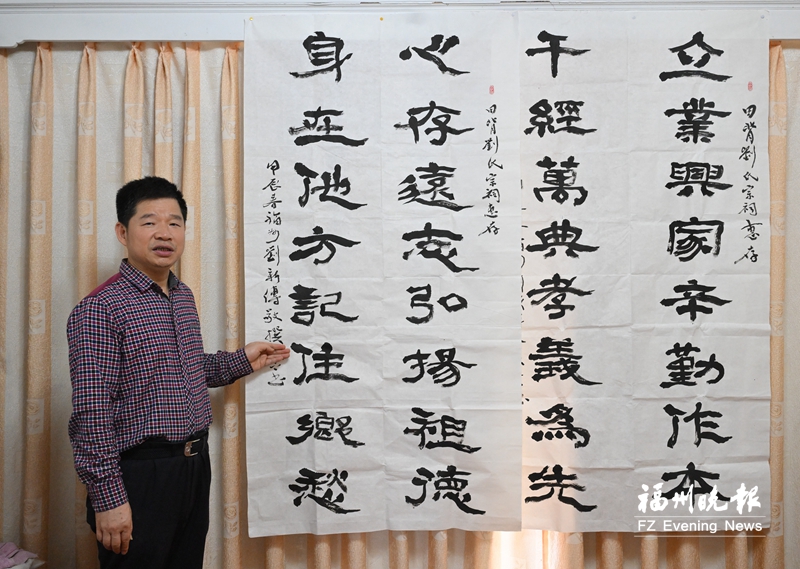 田背劉氏宗祠惠存
立業興家辛勤作本
千經萬典孝義為先
田背劉氏宗祠惠存
心存遠志弘揚祖德
身在他方記住鄉愁
甲辰春福州劉新
敬撰
福州晚報
FZ Evening News